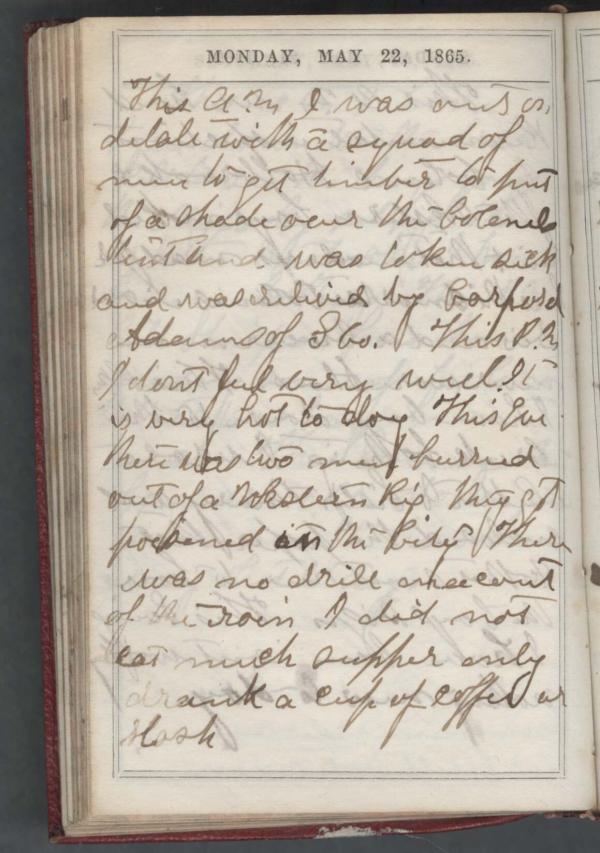 MONDAY, MAY 22, 1865.
This A.M I was out on
detale with a squad of
men to get timber to put
of a shade over the Colenels
tent and was token sick
and was relived by Corporal
Adams of I Co. This P.M
I dont feel very well. It
is very hot to day This Eve
there was two men burried
out of a Western Rig they got
poesened in the City There
was no drill on account
of the rain I did not
eat much supper only
drank a cup of coffee or